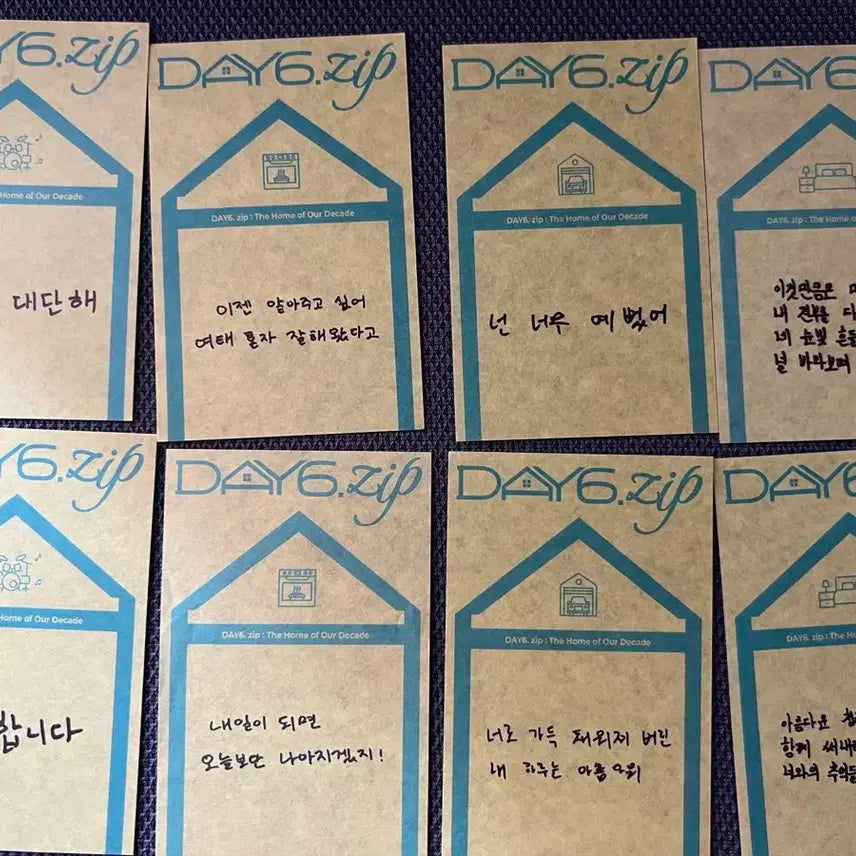 DAY6.zip
Home of Our Decade
대단해
DAY6.zip
DAY6. zip : The Home of Our Decade
이젠 알아주고 싶어
여태 혼자 잘해왔다고
DAY6.zip
DAY6. zip : The Home of Our Decade
넌 너무 예뻤어
DAY6
DAY6. zip : The Home of Our
이것만큼은
내 전부를 다
네 눈빛
널 바라보며
Y6.zip
Home of Our Decade
합니다
DAY6.zip
DAY6. zip : The Home of Our Decade
내일이 되면
오늘보단 나아지겠지!
DAY6.zip
DAY6. zip : The Home of Our Decade
너로 가득 채워져 버린
내 하루는 아름다워
DAY6
DAY6. zip : The Home of Our
아름다운
함께 써내려
너와의 추억들